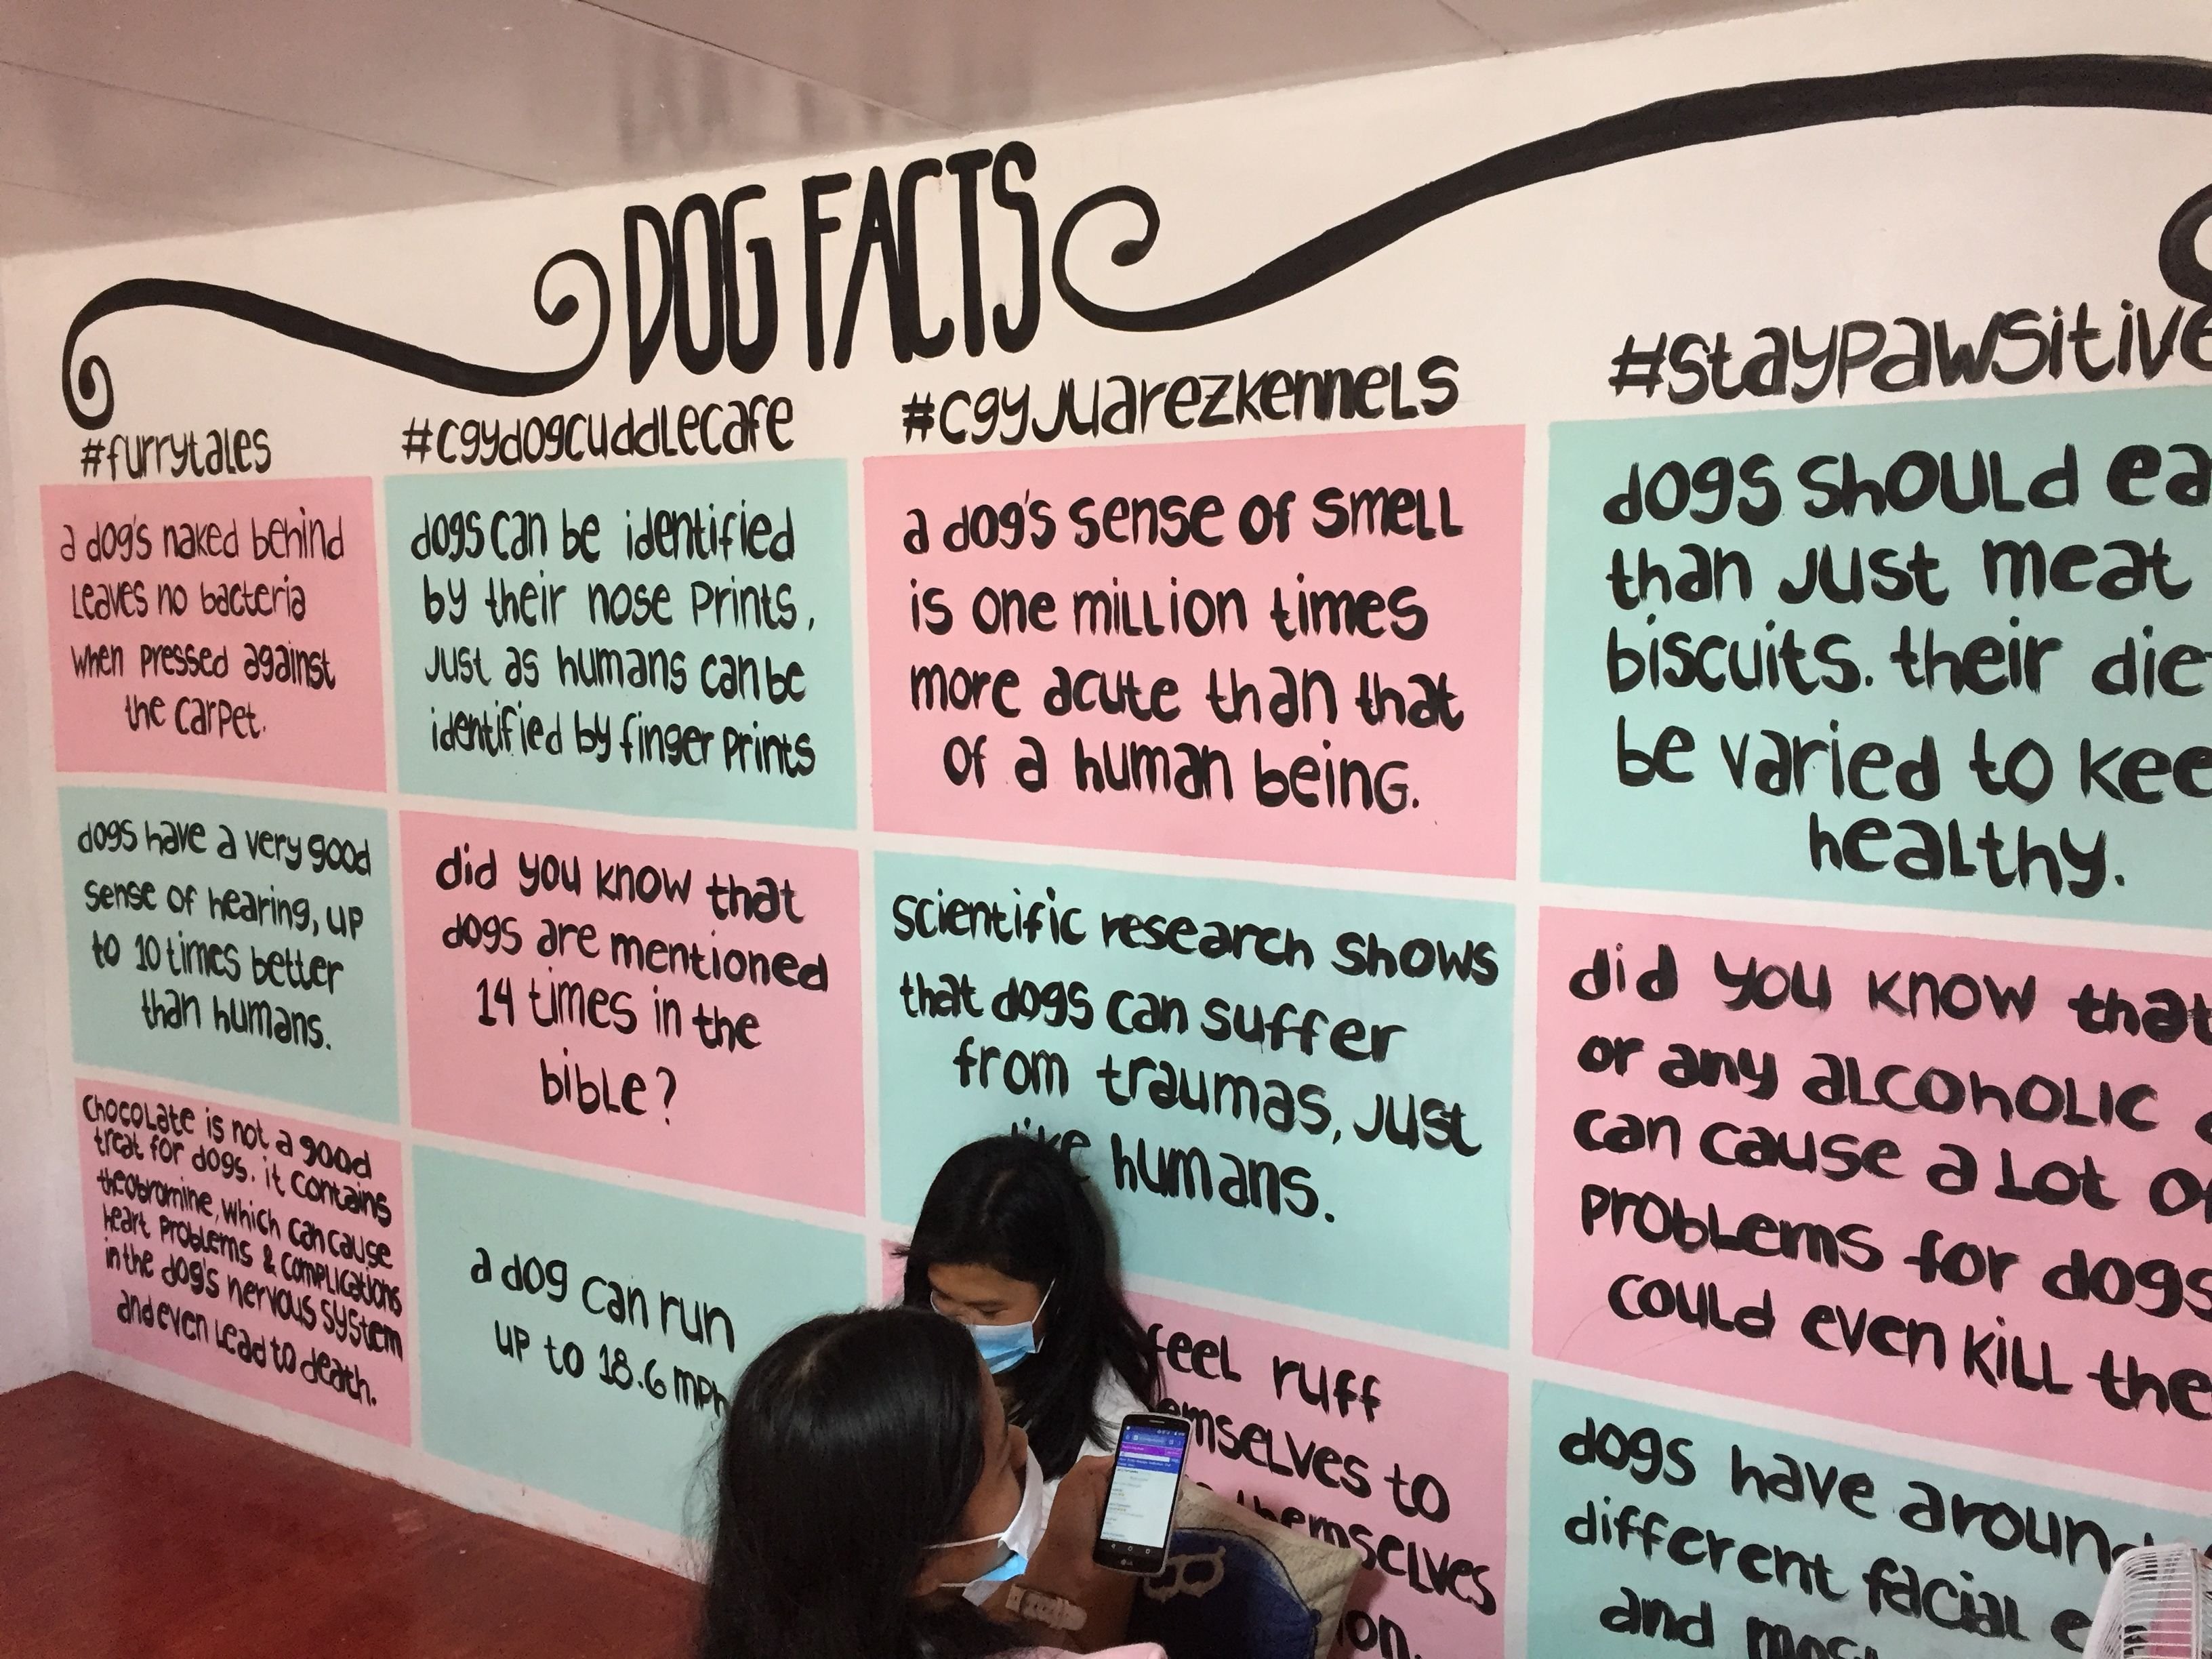 DOG FACTS
#furrytales
a dog's naked behind
leaves no bacteria
when pressed against
the carpet.
dogs have a very good
sense of hearing, up
to 10 times better
than humans.
chocolate is not a good
treat for dogs. it contains
theobromine, which can cause
heart problems & complications
in the dog's nervous system
and even lead to death.
#cgydogcuddlecafe
dogs can be identified
by their nose prints,
just as humans can be
identified by finger prints
did you know that
dogs are mentioned
14 times in the
bible?
a dog can run
up to 18.6 mph
#cgyjuarezkennels
a dog's sense of smell
is one million times
more acute than that
of a human being.
scientific research shows
that dogs can suffer
from traumas, just
like humans.
feel ruff
emselves to
themselves
on.
#staypawsitive
dogs should ea
than just meat
biscuits. their die
be varied to kee
healthy.
did you know that
or any alcoholic
can cause a lot of
problems for dogs
could even kill the
dogs have around
different facial e
and most
LG